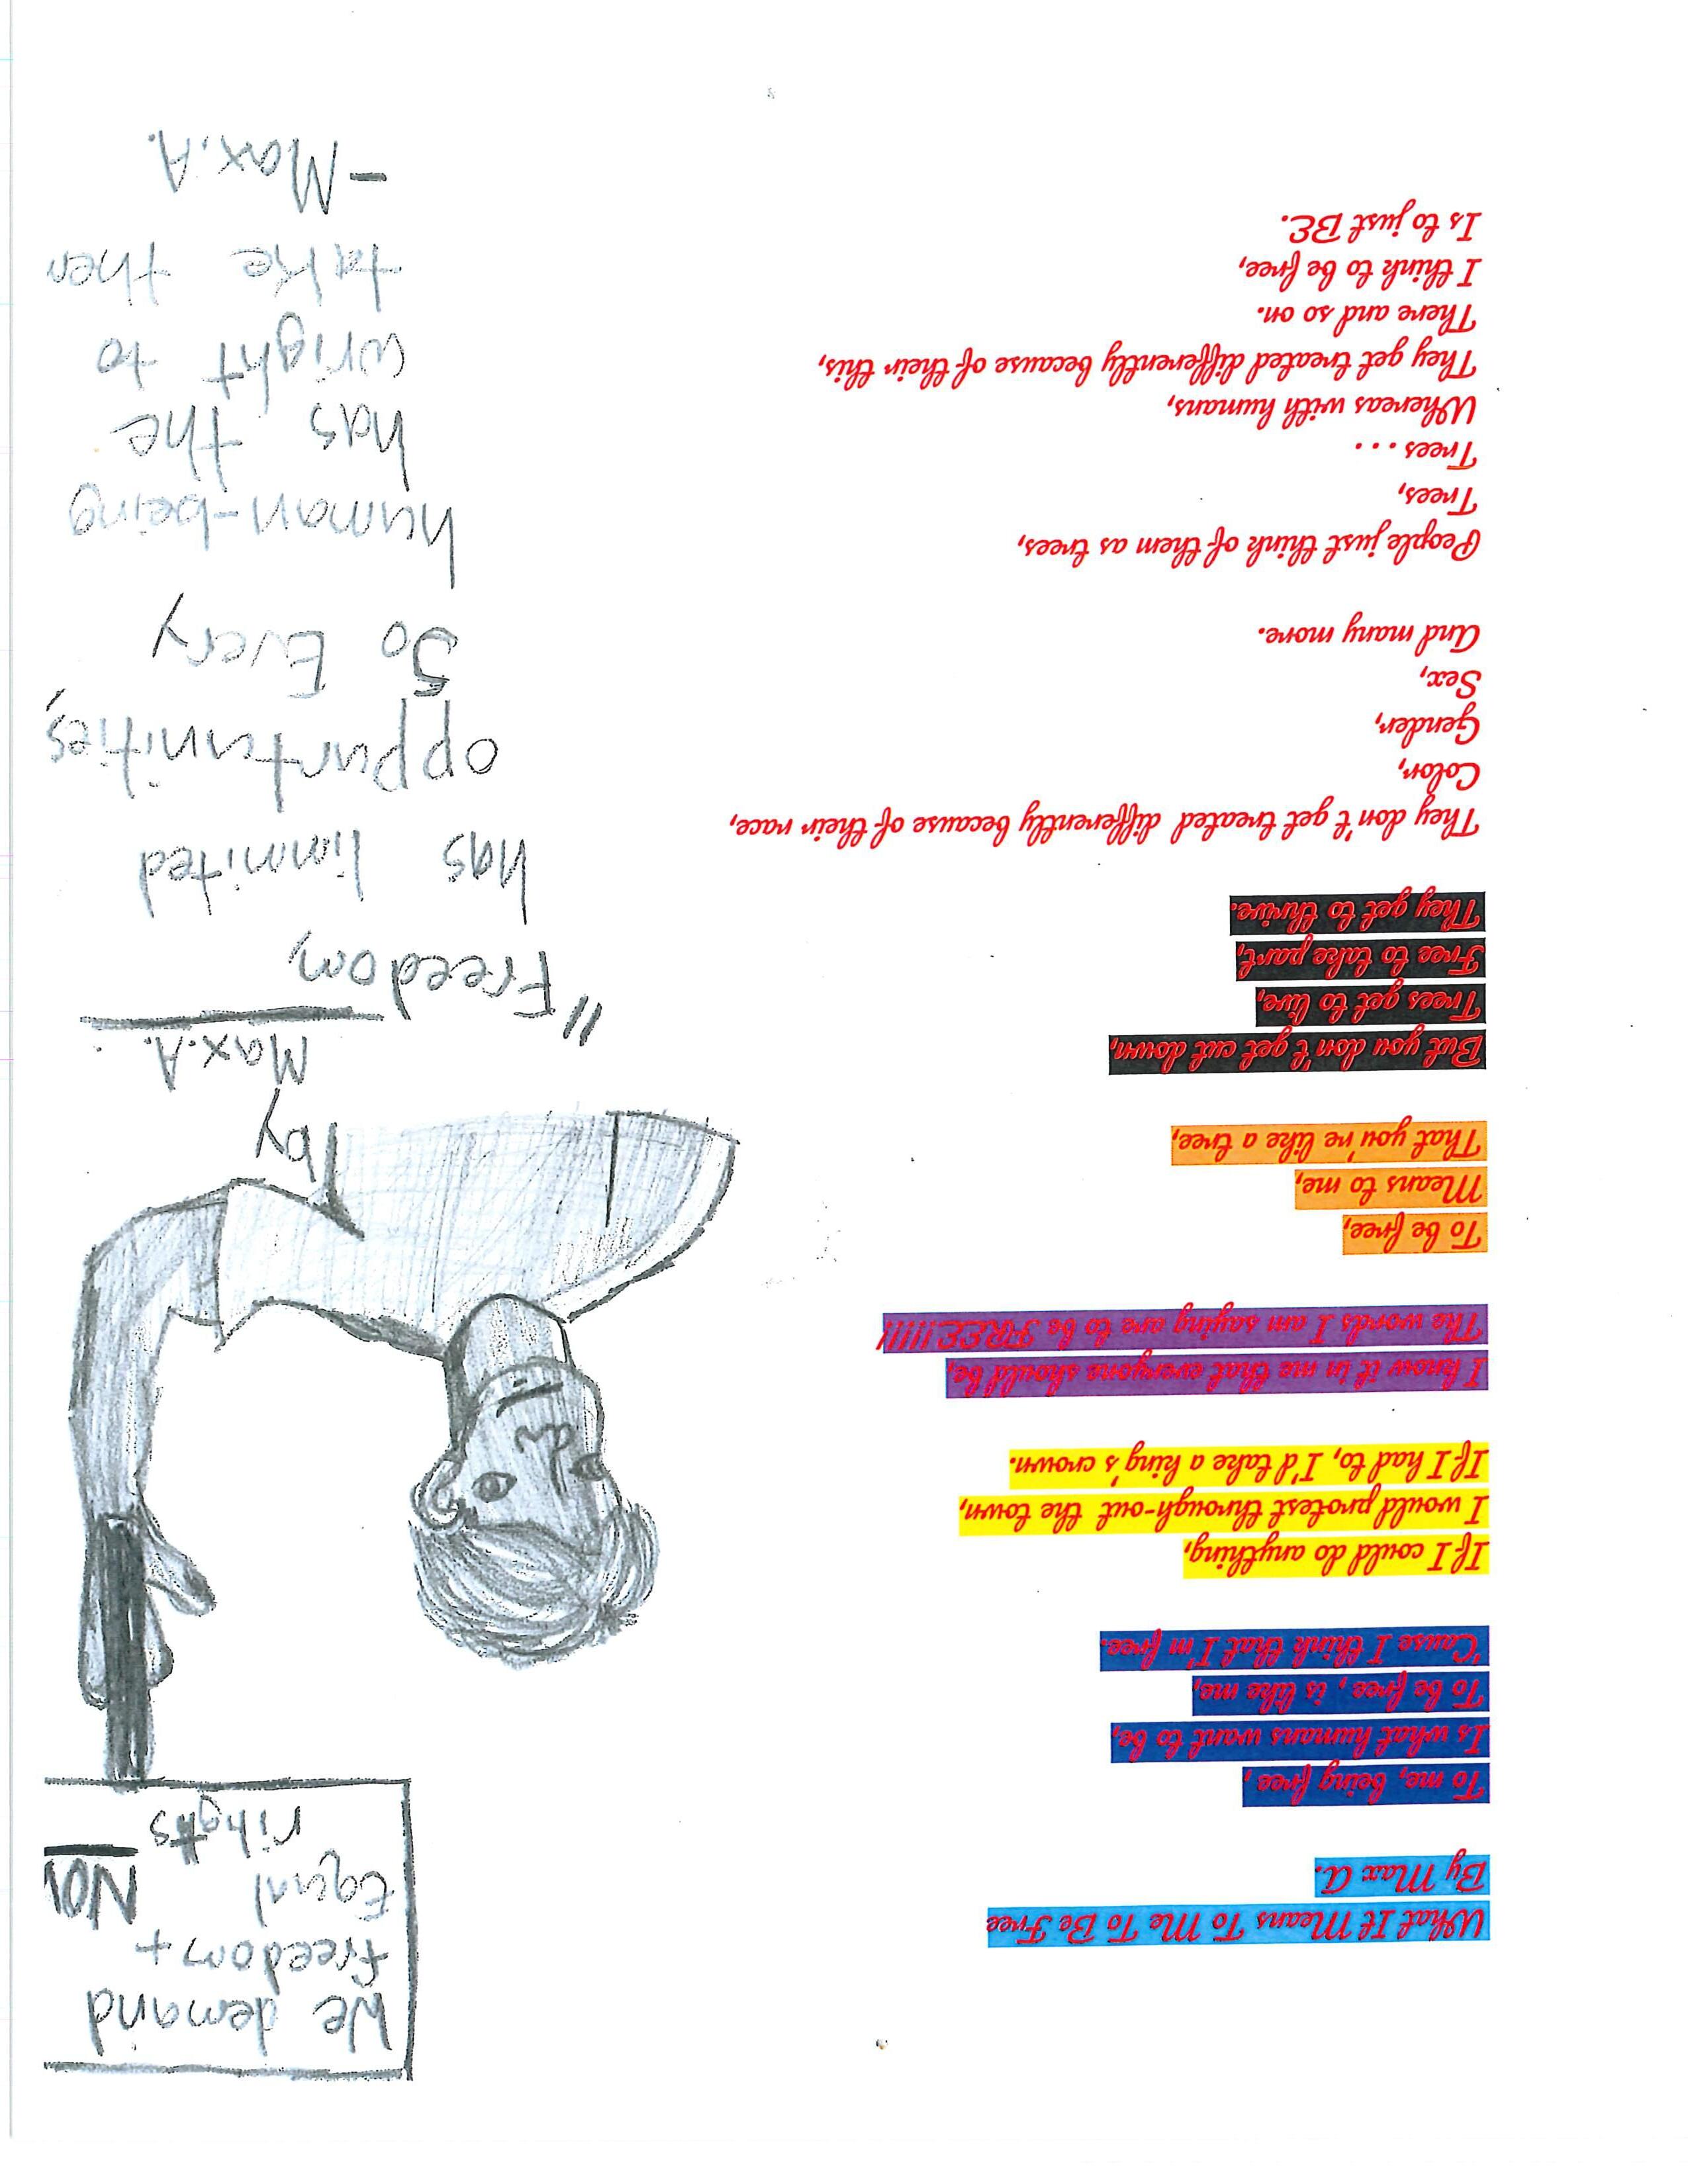 What It Means To Me To Be Free
By Max A.
To me, being free ,
Is what humans want to be,
To be free , is like me,
'Cause I think that I'm free.
If I could do anything,
I would protest through-out the town,
If I had to, I'd take a king's crown.
I know it in me that everyone should be,
The words I am saying are to be FREE!!!!!
To be free,
Means to me,
That you're like a tree,
But you don't get cut down,
Trees get to live,
Free to take part,
They get to thrive.
They don't get treated differently because of their race,
Color,
Gender,
Sex,
And many more.
People just think of them as trees,
Trees,
Trees . . .
Whereas with humans,
They get treated differently because of their this,
There and so on.
I think to be free,
Is to just BE.
We demand
freedom +
Equal
rihgts
by
Max.A.
"Freedom
has limmited
oppurtunities,
So Every
human-being
has the
wright to
take
-Max.A.